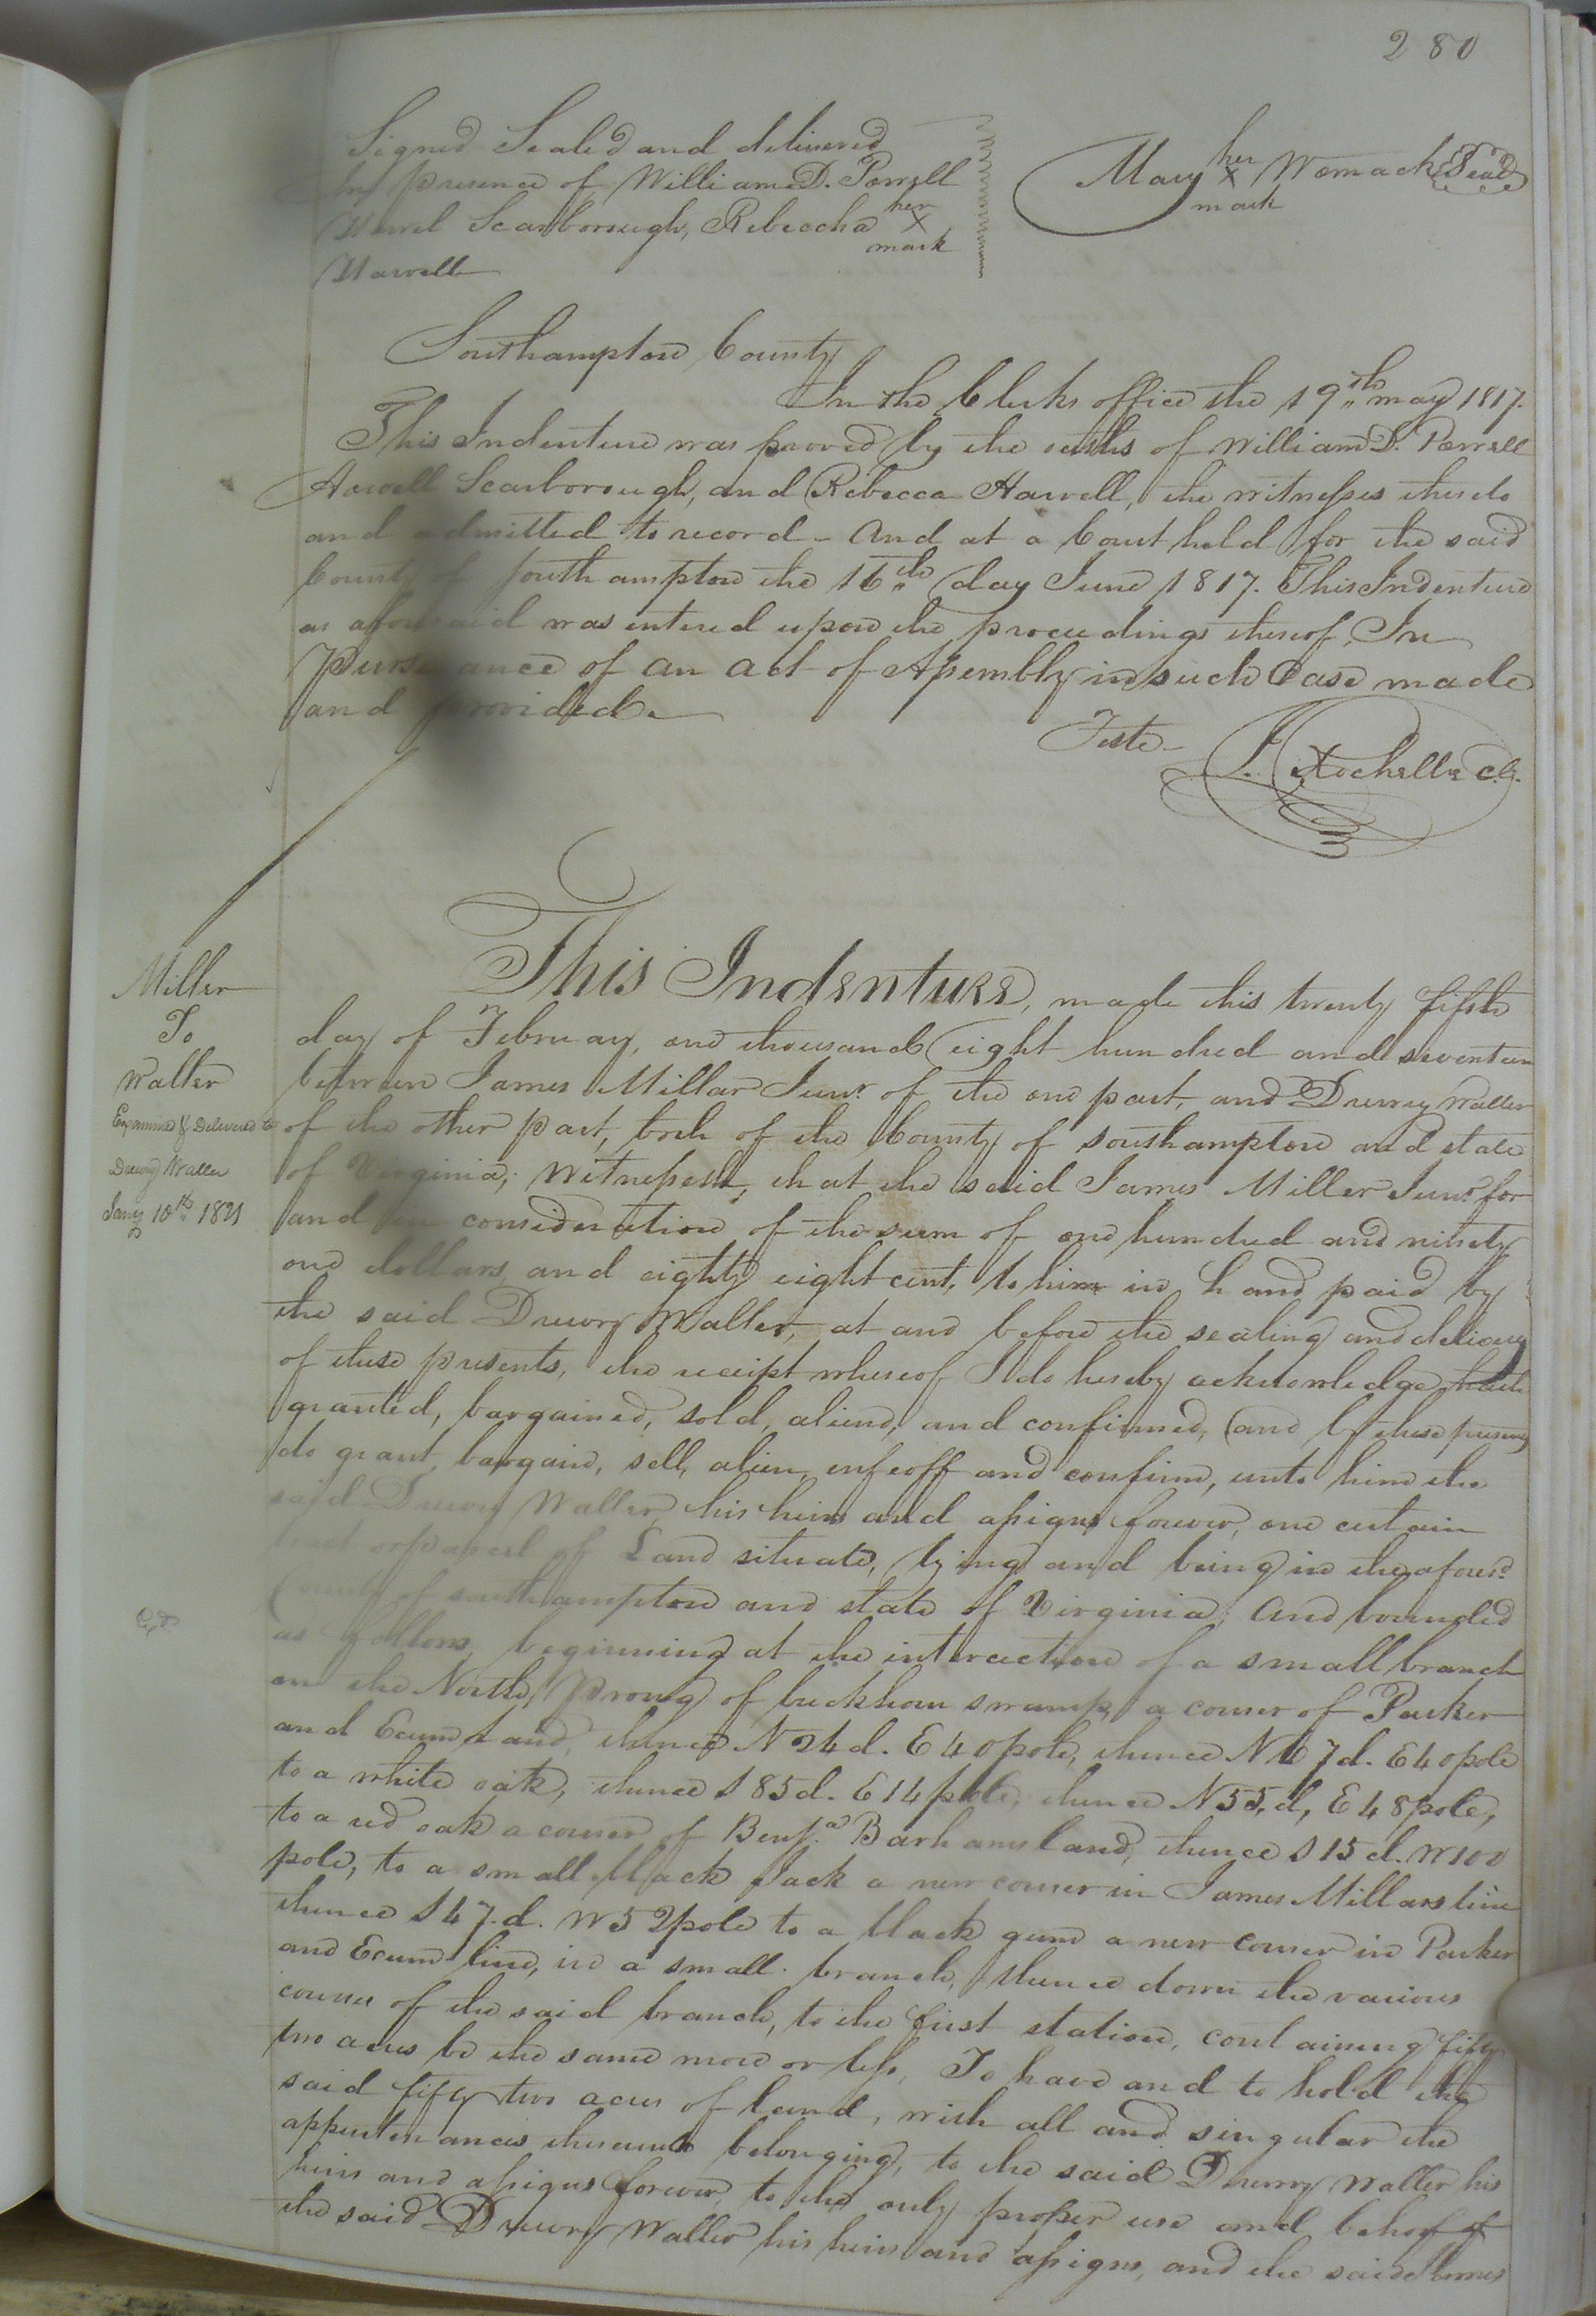 280
Signed Sealed and delivered
In presence of William D. Powell
Howel Scarborough, Rebeccha her X mark
Harwell
Mary her X mark Womack Seal
Southampton County
In the Clerks office the 19th may 1817.
This Indenture was proved by the oaths of William D. Powell
Howell Scarborough, and Rebecca Harwell, the witnesses thereto
and admitted to record - And at a Court held for the said
County of Southampton the 16th day June 1817. This Indenture
as aforesaid was entered upon the proceedings thereof, In
Pursuance of an act of Assembly in such Case made
and provided.
Teste
J. Rochelle C.C.
Miller
To
Waller
Examined & Delivered to
Drewry Waller
Jany 10th 1821
This Indenture, made this twenty fifth
day of February, one thousand eight hundred and seventeen
between James Millar Junr. of the one part, and Drewry Waller
of the other part, both of the County of Southampton and state
of Virginia; Witnesseth, that the said James Miller Junr for
and in consideration of the sum of one hundred and ninety
one dollars, and eighty eight cent, to him in hand paid by
the said Drewry Waller, at and before the sealing and delivery
of these presents, the receipt whereof I do hereby acknowledge hath
granted, bargained, sold, aliend, and confirmed, and by these presents
do grant, bargain, sell, alien, enfeoff and confirm, unto him the
said Drewry Waller, his heirs and assigns forever, one certain
tract or parcel of Land situate, lying and being in the aforesd.
County of Southampton and state of Virginia; And bounded
as follows, beginning at the intersection of a small branch
on the North, Prong of buckhorn swamp, a corner of Parker
and land, thence N 24 d. E 40 pole, thence N 67 d. E 40 pole
to a white oak, thence S 85 d. E 14 pole, thence N 55, d, E 48 pole,
to a red oak a corner of Benja. Barhams land, thence S 15 d. W 100
pole, to a small black Jack a new corner in James Millars line
thence S 47. d. W 52 pole to a black gum a new corner in Parker
and line, in a small branch, thence down the various
courses of the said branch, to the first station, containing fifty
two acres be the same more or less, To have and to hold the
said fifty two acres of land, with all and singular the
appurtenances thereunto belonging, to the said Drewry Waller his
heirs and assigns forever, to the only proper use and behoof of
the said Drewry Waller his heirs and assigns, and the said James